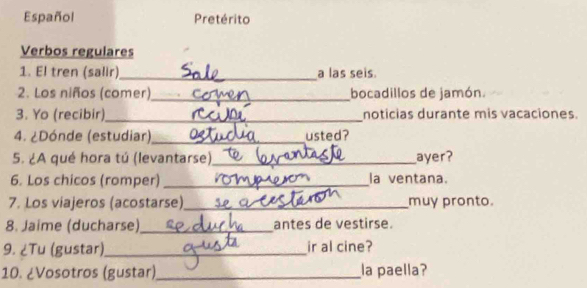 Español Pretérito
Verbos regulares
1. El tren (salir) Sale a las seis.
2. Los niños (comer) comen bocadillos de jamón.
3. Yo (recibir) recibi noticias durante mis vacaciones.
4. ¿Dónde (estudiar) estudia usted?
5. ¿A qué hora tú (levantarse) te levantaste ayer?
6. Los chicos (romper) rompieron la ventana.
7. Los viajeros (acostarse) se acostaron muy pronto.
8. Jaime (ducharse) se ducha antes de vestirse.
9. ¿Tu (gustar) gusta ir al cine?
10. ¿Vosotros (gustar) la paella?